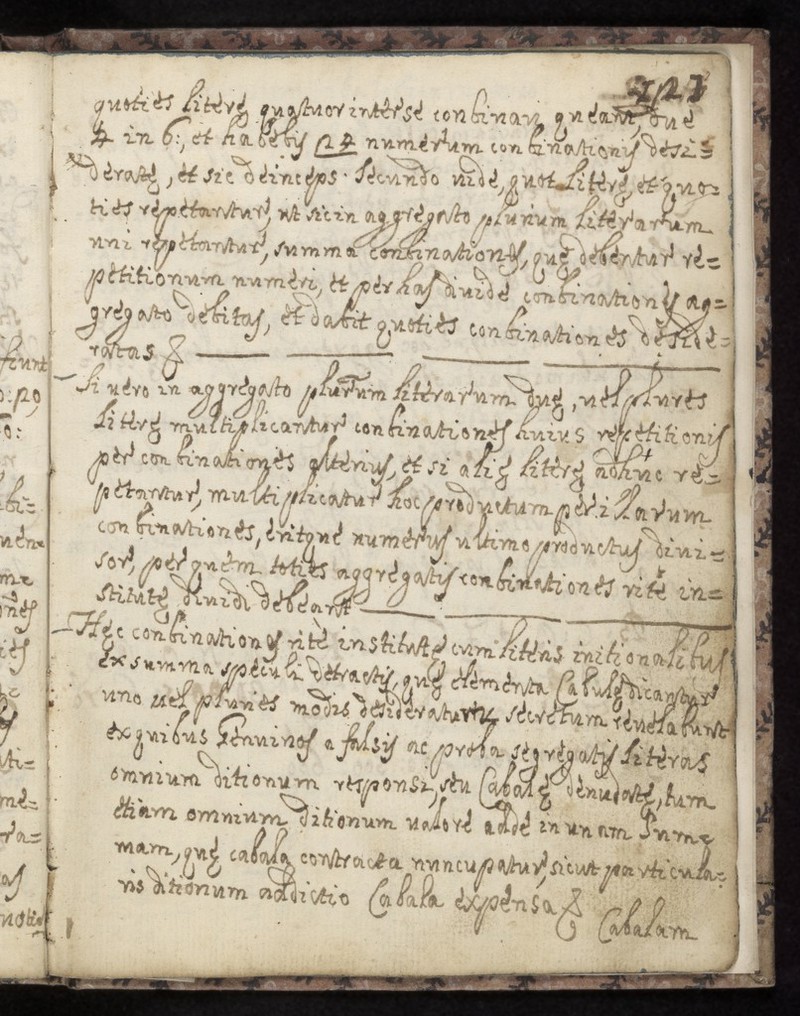 127
quoties literę quatuor inter se conbinari queant, duc
4 in 6:, et habebis 24 numerum conbinationis desi=
deratę, et sic deinceps. Secundo vide, quot literę, et quo=
ties repetantur, ut si in aggregato plurium literarum
uni repetantur, summa conbinationes, quę debentur re=
petitionum numeri, et per has divide conbinationes ag=
gregato debitas, et dabit quoties conbinationes deside=
ratas
Si vero in aggregato plurium literarum duę, vel plures
literę multiplicantur conbinationes huius repetitionis
per conbinationes alterius, et si alię literę adhuc re=
petantur, multiplicatur hoc productum per illarum
conbinationes, eritque numerus ultimo productus divi=
sor, per quem toties aggregatis conbinationes rite in=
stitutę dividi debeant
Hęc conbinationes rite institutę cum literis initionalibus
ex summa speculi detractis, quę elementa Cabulę dicantur
uno vel plunes modis desideratum secretum revelabunt
ex quibus genuinos a falsis ac proba segregatis literas
omnium ditionum responsi, seu Cabalę denudatę, tum
etiam omnium ditionum valore adde in unam Sum=
mam, quę cabala contracta nuncupatur, sicut particula=
ris ditionum addictio Cabala expensa
Cabalam
fiunt